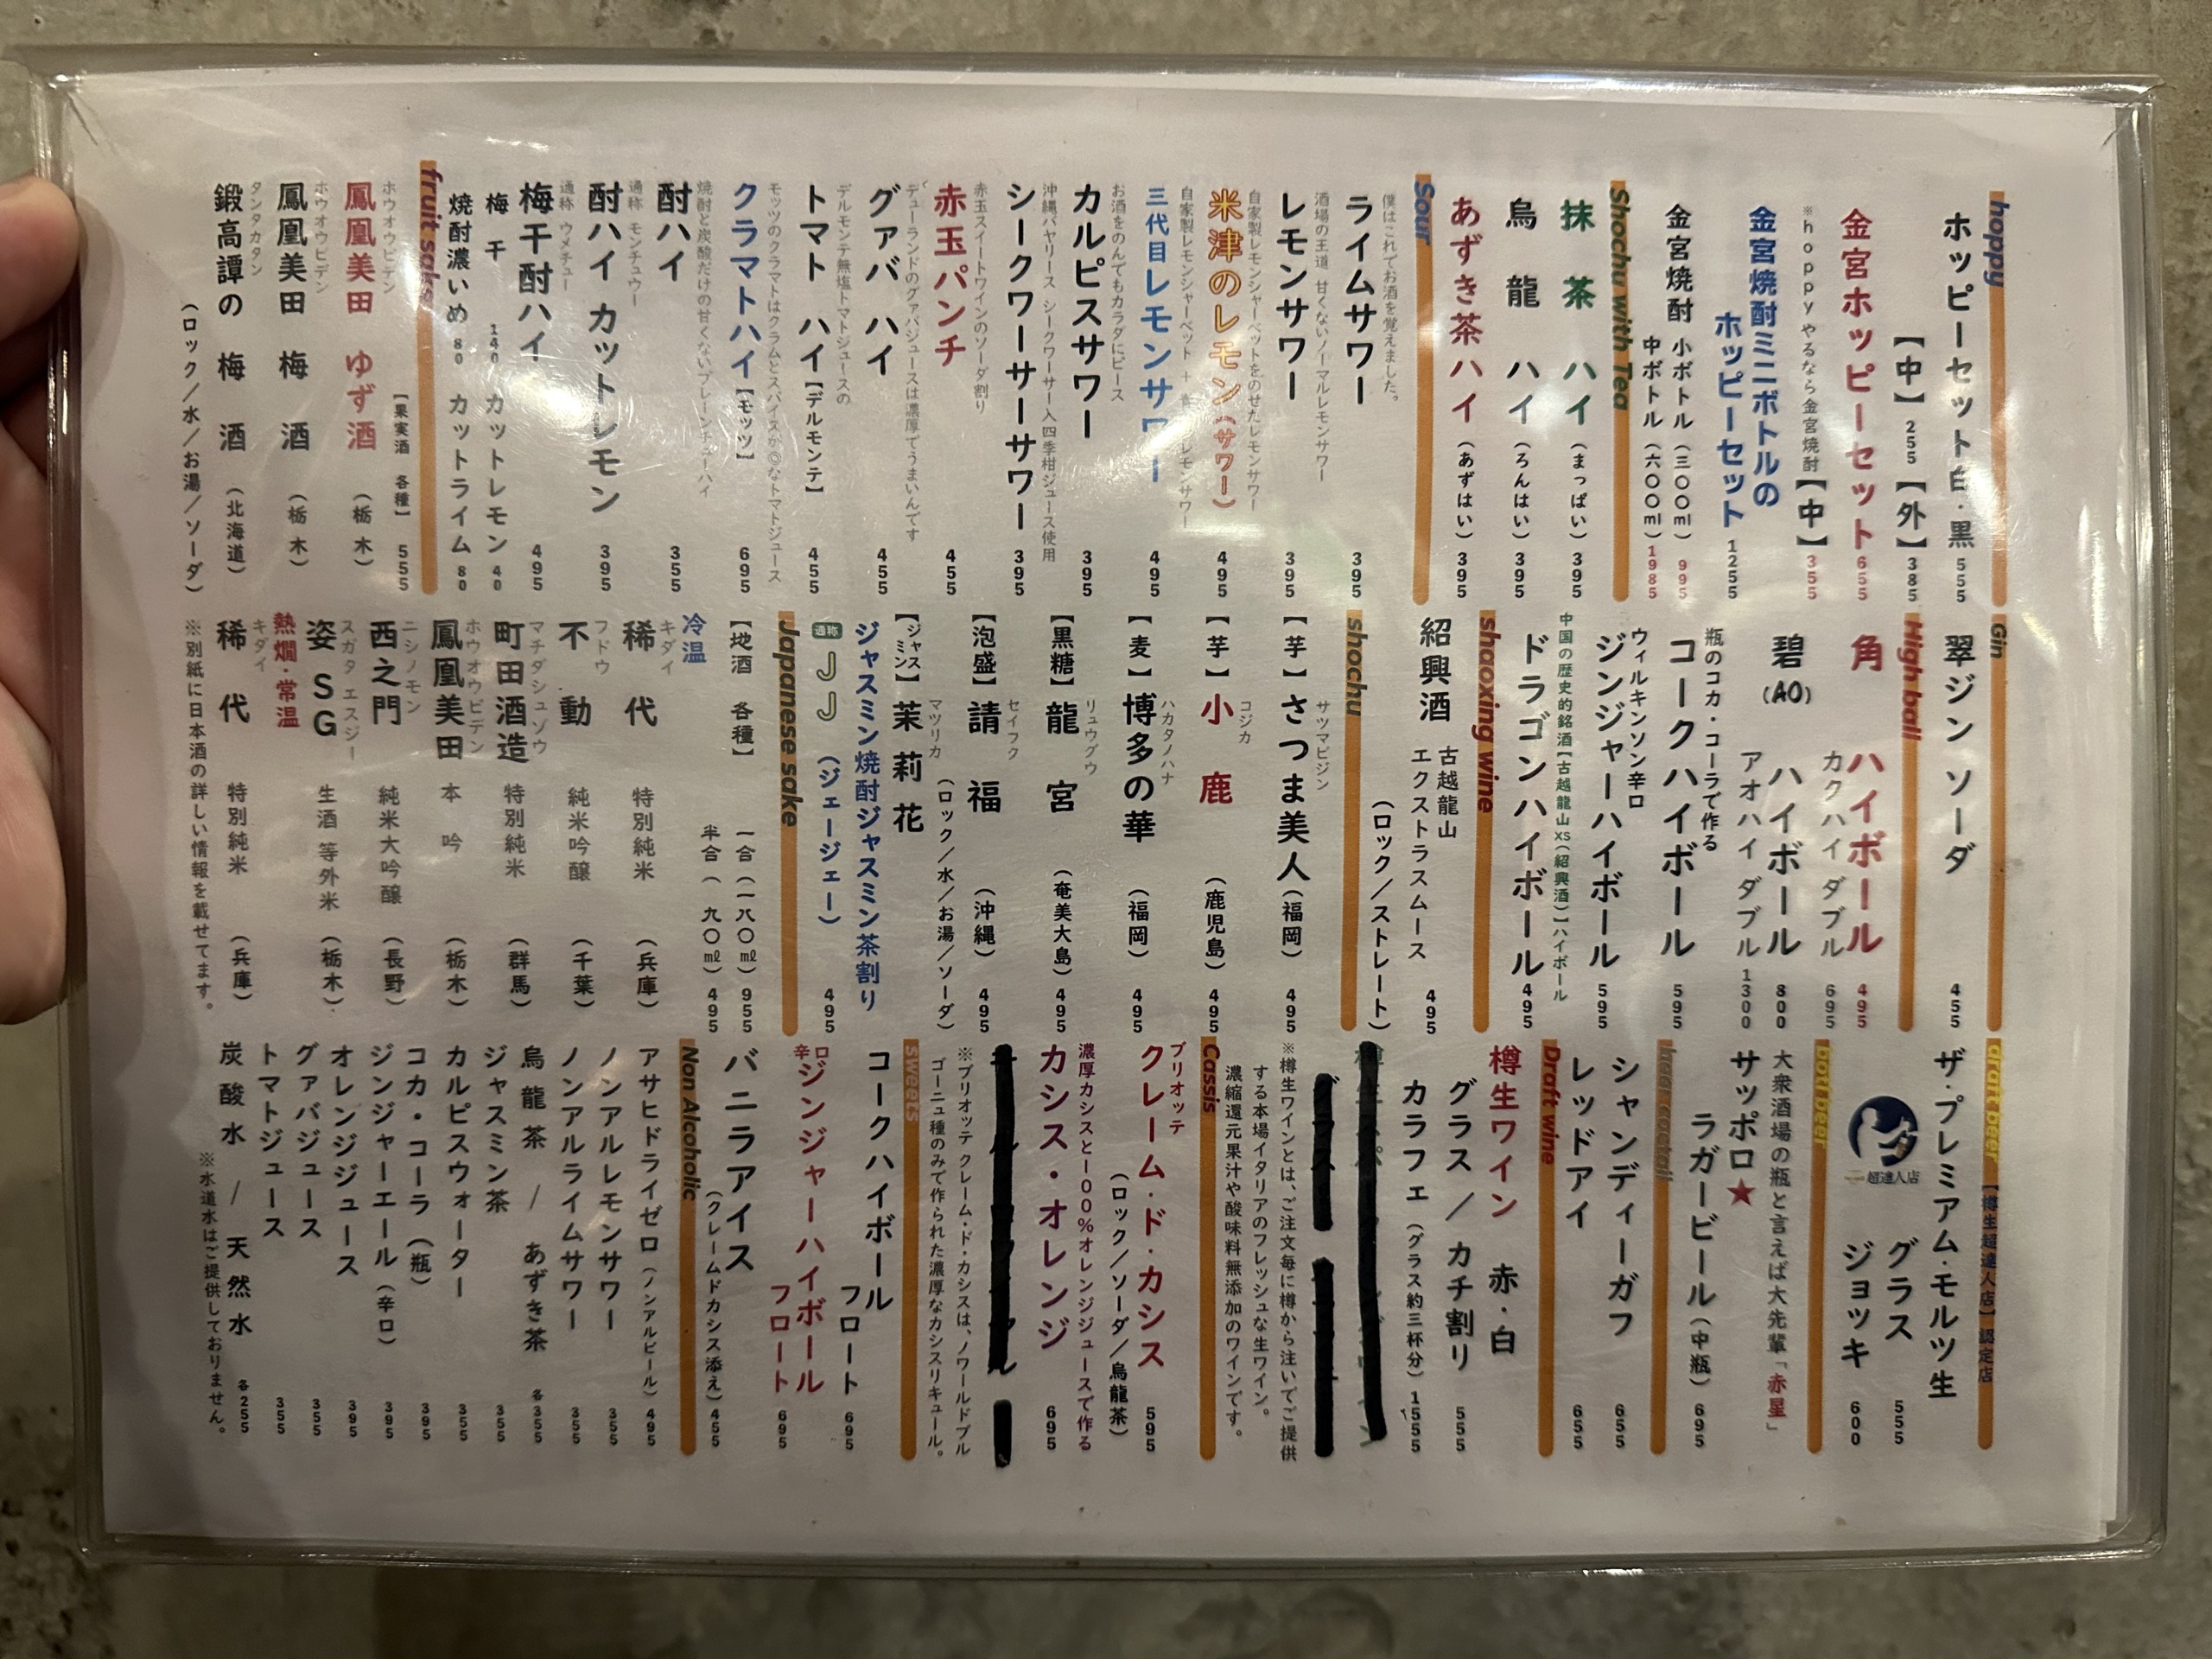 hoppy
ホッピーセット白・黒 555
【中】255【外】385
金宮ホッピーセット 655
※hoppyやるなら金宮焼酎【中】355
金宮焼酎ミニボトルの
ホッピーセット 1255
金宮焼酎 小ボトル（三〇〇ml）995
中ボトル（六〇〇ml）1985
Shochu with Tea
抹茶ハイ（まっぱい）395
烏龍ハイ（ろんはい）395
あずき茶ハイ（あずはい）395
Sour
僕はこれでお酒を覚えました。
ライムサワー 395
酒場の王道 甘くないノーマルレモンサワー
レモンサワー 395
自家製レモンシャーベットをのせたレモンサワー
米津のレモン（サワー）495
自家製レモンシャーベット + レモンサワー
三代目レモンサワー 495
お酒をのんでもカラダにピース
カルピスサワー 395
沖縄バヤリース シークワーサー入四季柑ジュース使用
シークワーサーサワー 395
赤玉スイートワインのソーダ割り
赤玉パンチ 455
デューランドのグァバジュースは濃厚でうまいんです
グァバハイ 455
デルモンテ無塩トマトジュースの
トマトハイ【デルモンテ】455
モッツのクラマトはクラムとスパイスが◎なトマトジュース
クラマトハイ【モッツ】695
焼酎と炭酸だけの甘くないプレーンチューハイ
酎ハイ 355
通称 モンチュウー
酎ハイ カットレモン 395
通称 ウメチュー
梅干酎ハイ 495
梅干 140 カットレモン 40
焼酎濃いめ 80 カットライム 80
fruit sake
【果実酒 各種】555
ホウオウビデン
鳳凰美田 ゆず酒（栃木）
ホウオウビデン
鳳凰美田 梅酒（栃木）
タンタカタン
鍛高譚の梅酒（北海道）
（ロック／水／お湯／ソーダ）
Gin
翠ジンソーダ 455
High ball
角ハイボール 495
カクハイダブル 695
碧（AO）ハイボール 800
アオハイダブル 1300
瓶のコカ・コーラで作る
コークハイボール 595
ウィルキンソン辛口
ジンジャーハイボール 595
中国の歴史的銘酒【古越龍山xs（紹興酒）】ハイボール
ドラゴンハイボール 495
shaoxing wine
紹興酒 古越龍山
エクストラスムース 495
（ロック／ストレート）
shochu
サツマビジン
【芋】さつま美人（福岡）495
コジカ
【芋】小鹿（鹿児島）495
ハカタノハナ
【麦】博多の華（福岡）495
リュウグウ
【黒糖】龍宮（奄美大島）495
セイフク
【泡盛】請福（沖縄）495
（ロック／水／お湯／ソーダ）
マツリカ
【ジャスミン】茉莉花
ジャスミン焼酎ジャスミン茶割り
通称 JJ（ジェージェー）495
Japanese sake
【地酒 各種】一合（一八〇㎖）955
半合（九〇㎖）495
冷温
キダイ
稀代 特別純米（兵庫）
フドウ
不動 純米吟醸（千葉）
マチダシュゾウ
町田酒造 特別純米（群馬）
ホウオウビデン
鳳凰美田 本吟（栃木）
ニシノモン
西之門 純米大吟醸（長野）
スガタ エスジー
姿SG 生酒 等外米（栃木）
熱燗・常温
キダイ
稀代 特別純米（兵庫）
※別紙に日本酒の詳しい情報を載せてます。
draft beer【樽生超達人店】認定店
ザ・プレミアム・モルツ生
グラス 555
ジョッキ 600
超達人店
bott beer
大衆酒場の瓶と言えば大先輩「赤星」
サッポロ★
ラガービール（中瓶）695
beer coctail
シャンディーガフ 655
レッドアイ 655
Draft wine
樽生ワイン 赤・白
グラス／カチ割り 555
カラフェ（グラス約三杯分）1555
※樽生ワインとは、ご注文毎に樽から注いでご提供
する本場イタリアのフレッシュな生ワイン。
濃縮還元果汁や酸味料無添加のワインです。
Cassis
ブリオッテ
クレーム・ド・カシス 595
（ロック／ソーダ／烏龍茶）
濃厚カシスと100%オレンジジュースで作る
カシス・オレンジ 695
※ブリオッテ クレーム・ド・カシスは、ノワールドブル
ゴーニュ種のみで作られた濃厚なカシスリキュール。
sweets
コークハイボール
フロート 695
辛口ジンジャーハイボール
フロート 695
バニラアイス
（クレームドカシス添え）455
Non Alcoholic
アサヒドライゼロ（ノンアルビール）495
ノンアルレモンサワー 355
ノンアルライムサワー 355
烏龍茶 / あずき茶 各355
ジャスミン茶 355
カルピスウォーター 355
コカ・コーラ（瓶）395
ジンジャーエール（辛口）395
オレンジジュース 395
グァバジュース 355
トマトジュース 355
炭酸水 / 天然水 各255
※水道水はご提供しておりません。